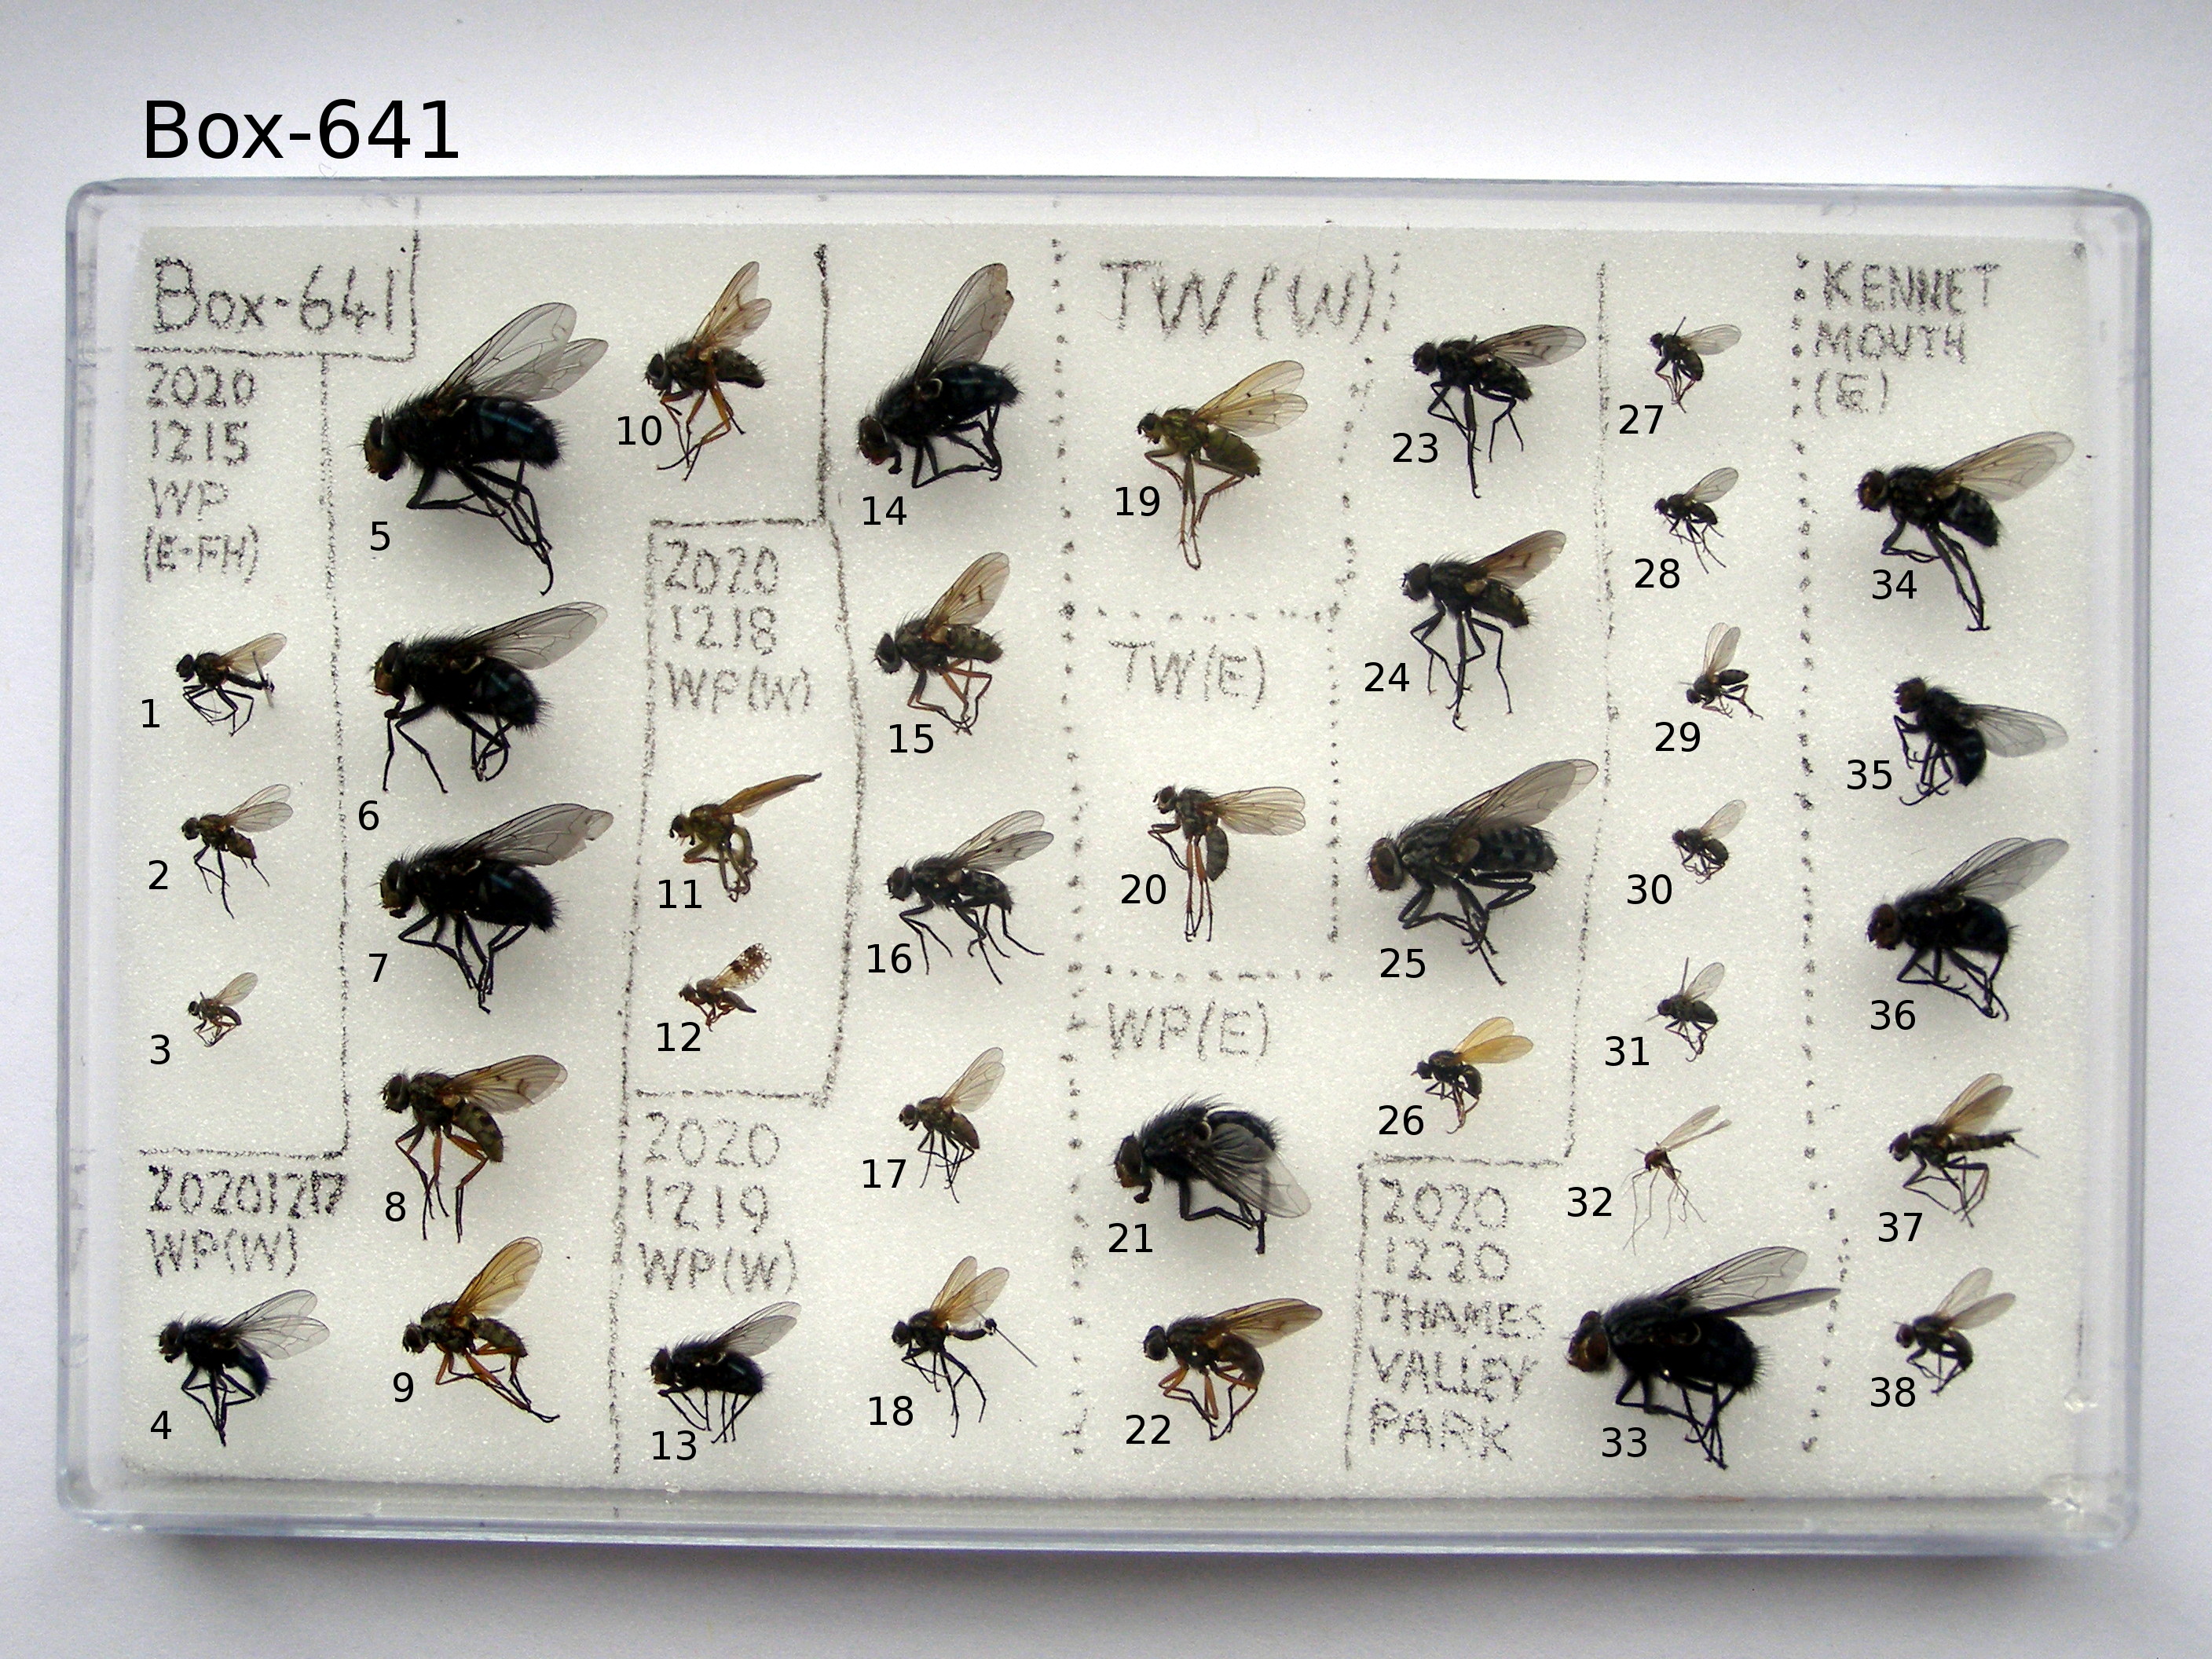 Box-641
Box-641
2020
1215
WP
(E-FH)
1
2
3
20201217
WP(W)
4
5
6
7
8
9
10
2020
1218
WP(W)
11
12
2020
1219
WP(W)
13
14
15
16
17
18
TW(W)
19
TW(E)
20
WP(E)
21
22
23
24
25
26
2020
1220
THAMES
VALLEY
PARK
27
28
29
30
31
32
33
KENNET
MOUTH
(E)
34
35
36
37
38